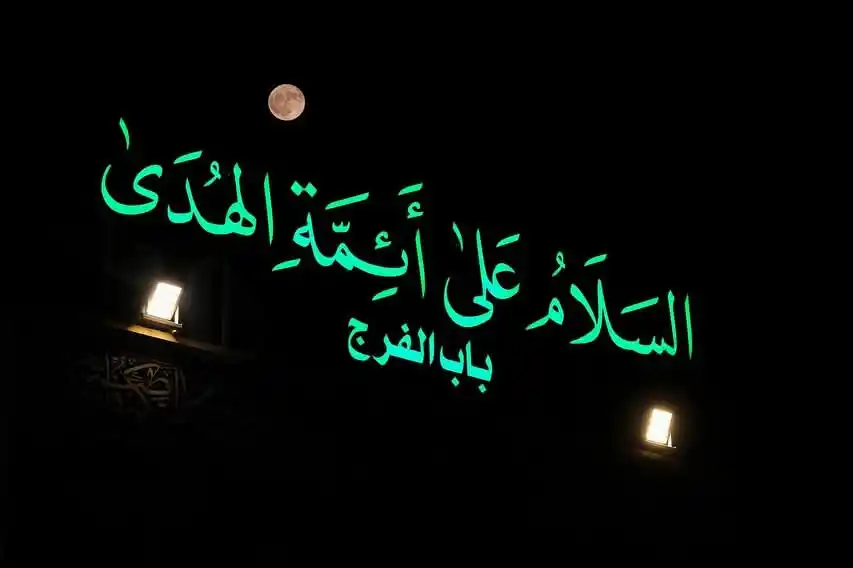 السَلَامُ عَلىٰ أَئِمَّةِ الهُدَىٰ
باب الفرج